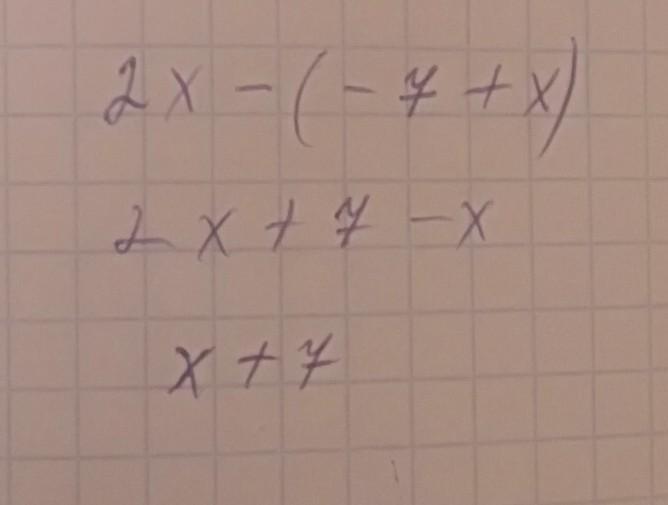 2x - (-7 + x)
2x + 7 - x
x + 7